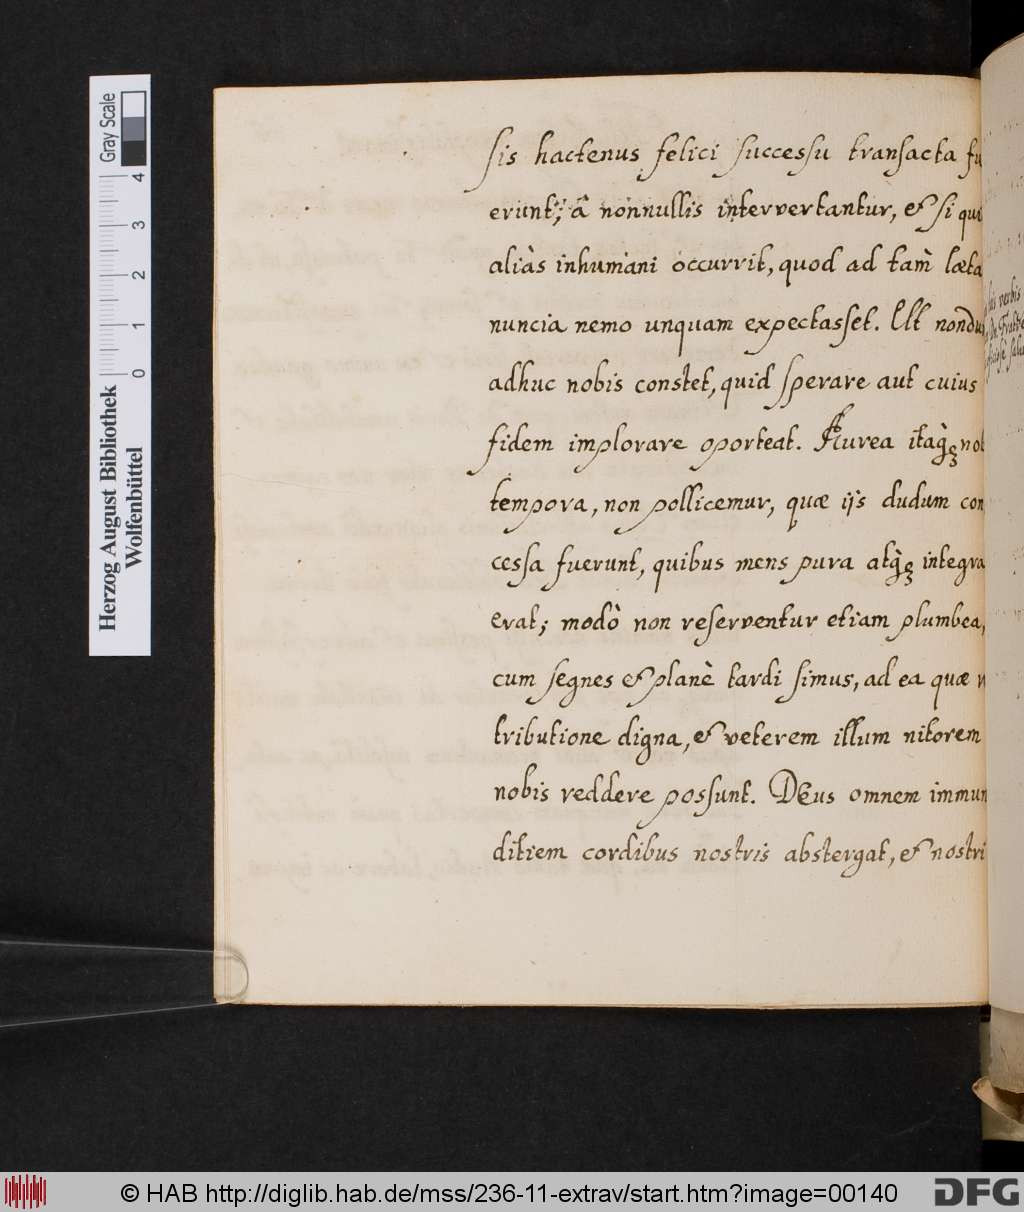 sis hactenus felici successu transacta fu
erunt; â nonnullis intervertantur, & si qui
aliàs inhumani occurrit, quod ad tam̀ læta
nuncia nemo unquam expectasset. Ut nondu
adhuc nobis constet, quid sperare aut cuius
fidem implorare oporteat. Aurea itaq̀ꝫ nob
tempora, non pollicemur, quæ ijs dudum con
cessa fuerunt, quibus mens pura atq̀ꝫ integra
erat; modò non reserventur etiam plumbea,
cum segnes & planè tardi simus, ad ea quæ
tributione digna, & veterem illum nitorem
nobis reddere possunt. DEus omnem immun
ditiem cordibus nostris abstergat, & nostri
verbis
Gray Scale
0 1 2 3 4
Herzog August Bibliothek
Wolfenbüttel
© HAB http://diglib.hab.de/mss/236-11-extrav/start.htm?image=00140
DFG